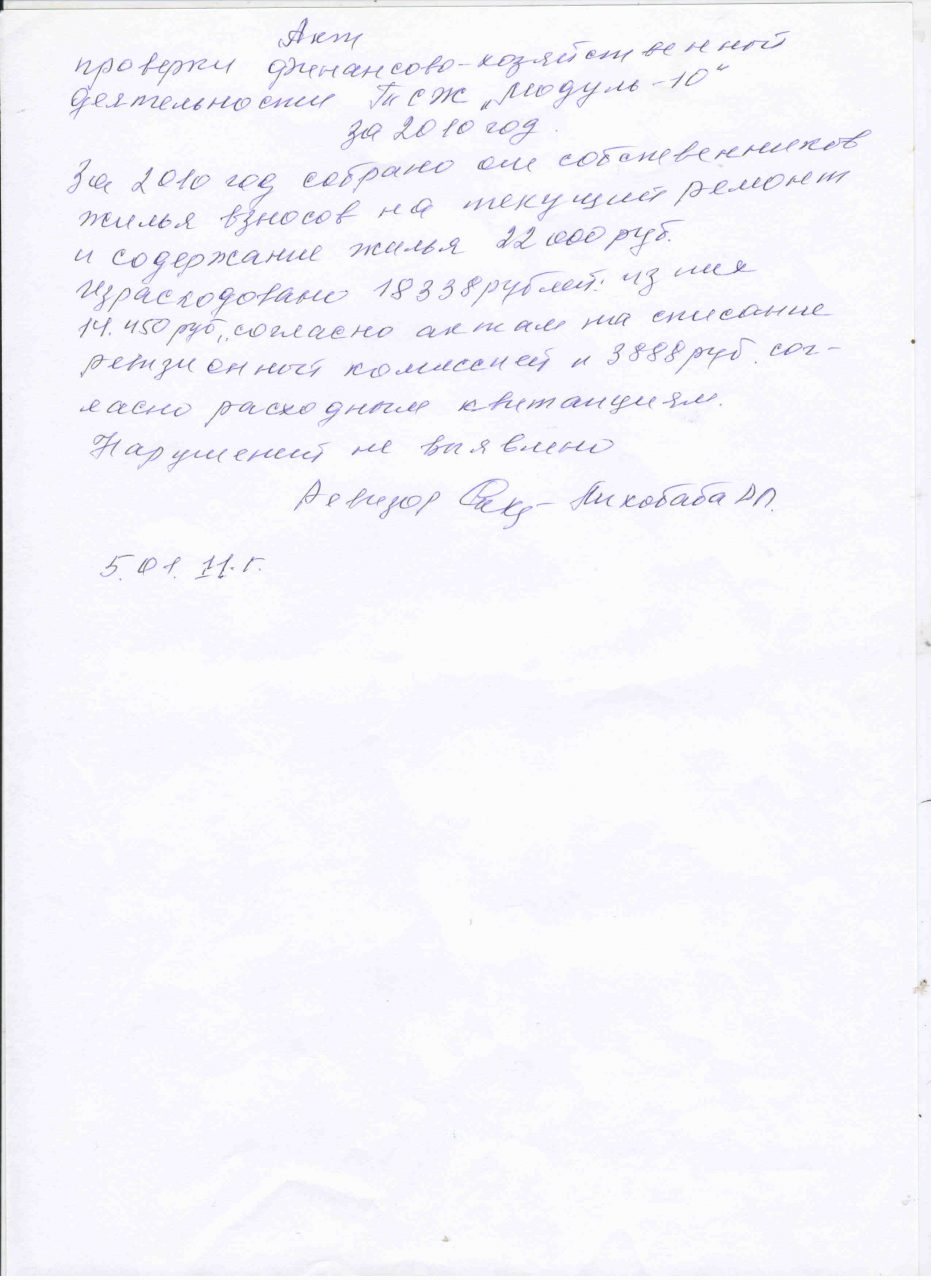 Акт
проверки финансово-хозяйственной
деятельности ТСЖ „Модуль-10“
за 2010 год.
За 2010 год собрано от собственников
жилья взносов на текущий ремонт
и содержание жилья 22 000 руб.
Израсходовано 18338 рублей. из них
14.450 руб., согласно актам на списание
ревизионной комиссией и 3888 руб. сог-
ласно расходным квитанциям.
Нарушений не выявлено
Ревизор Пихобаба
5.01.11.г.